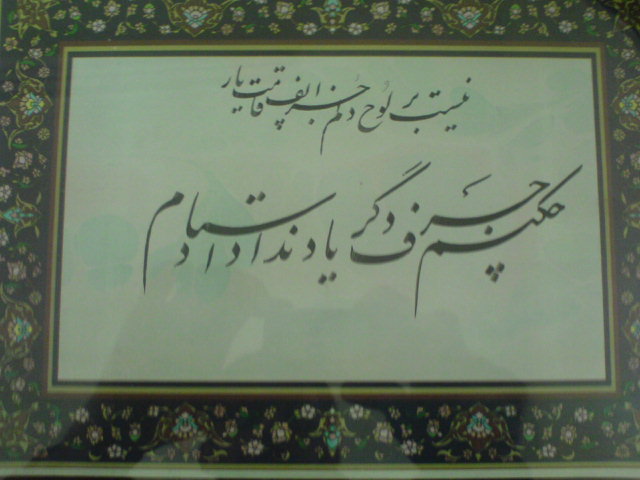 نیست بر لوح دلم جز الف قامت یار
چکنم حرف دگر یاد نداد استادم